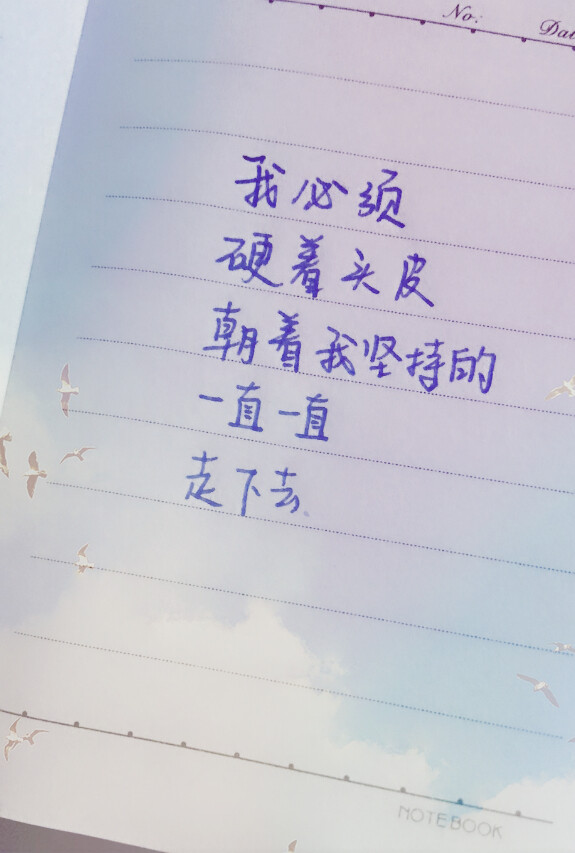 No:
我必须
硬着头皮
朝着我坚持的
一直一直
走下去.
NOTEBOOK